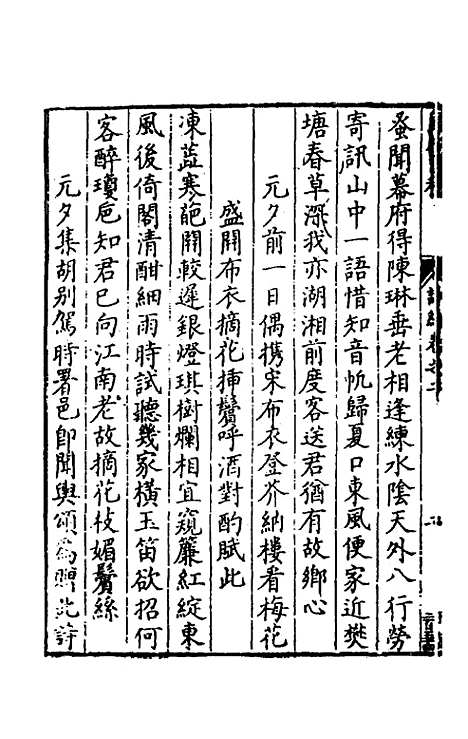 蚤聞幕府得陳琳垂老相逢練水陰天外八行勞
寄訊山中一語惜知音帆歸夏口東風便家近樊
塘春草深我亦湖湘前度客送君猶有故鄉心
元夕前一日偶携宋布衣登芥納樓看梅花
盛開布衣摘花挿鬢呼酒對酌賦此
凍蕋寒葩開較遲銀燈琪樹爛相宜窺簾紅綻東
風後倚閣清酣細雨時試聽幾家橫玉笛欲招何
客醉瓊巵知君已向江南老故摘花枝媚鬢絲
元夕集胡別駕時署邑即聞輿頌爲贈此詩